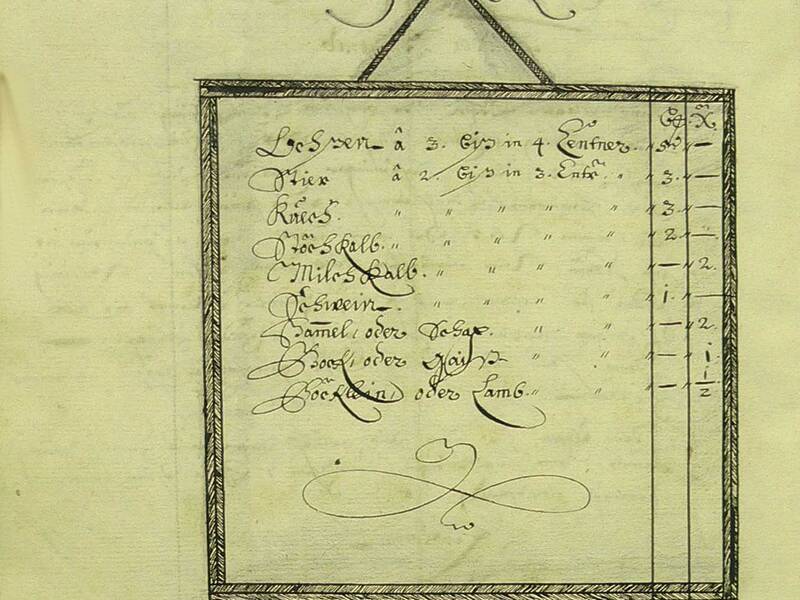 ß. X.
Ochsen â 3. biß in 4. Centner. " — " —
Stier â 2. biß in 3. Centr. " " 3. " —
Küech. " " " " " " 3 " —
Stöchkalb. " " " " " 2 " —
Milchkalb. " " " " " — " 2.
Schwein. " " " " 1. " —
Ham̅el, oder Schaf. " " " — " 2.
Bock, oder Gaiß " " " — " 1
Böcklein, oder Lamb. " " " — " 1/2